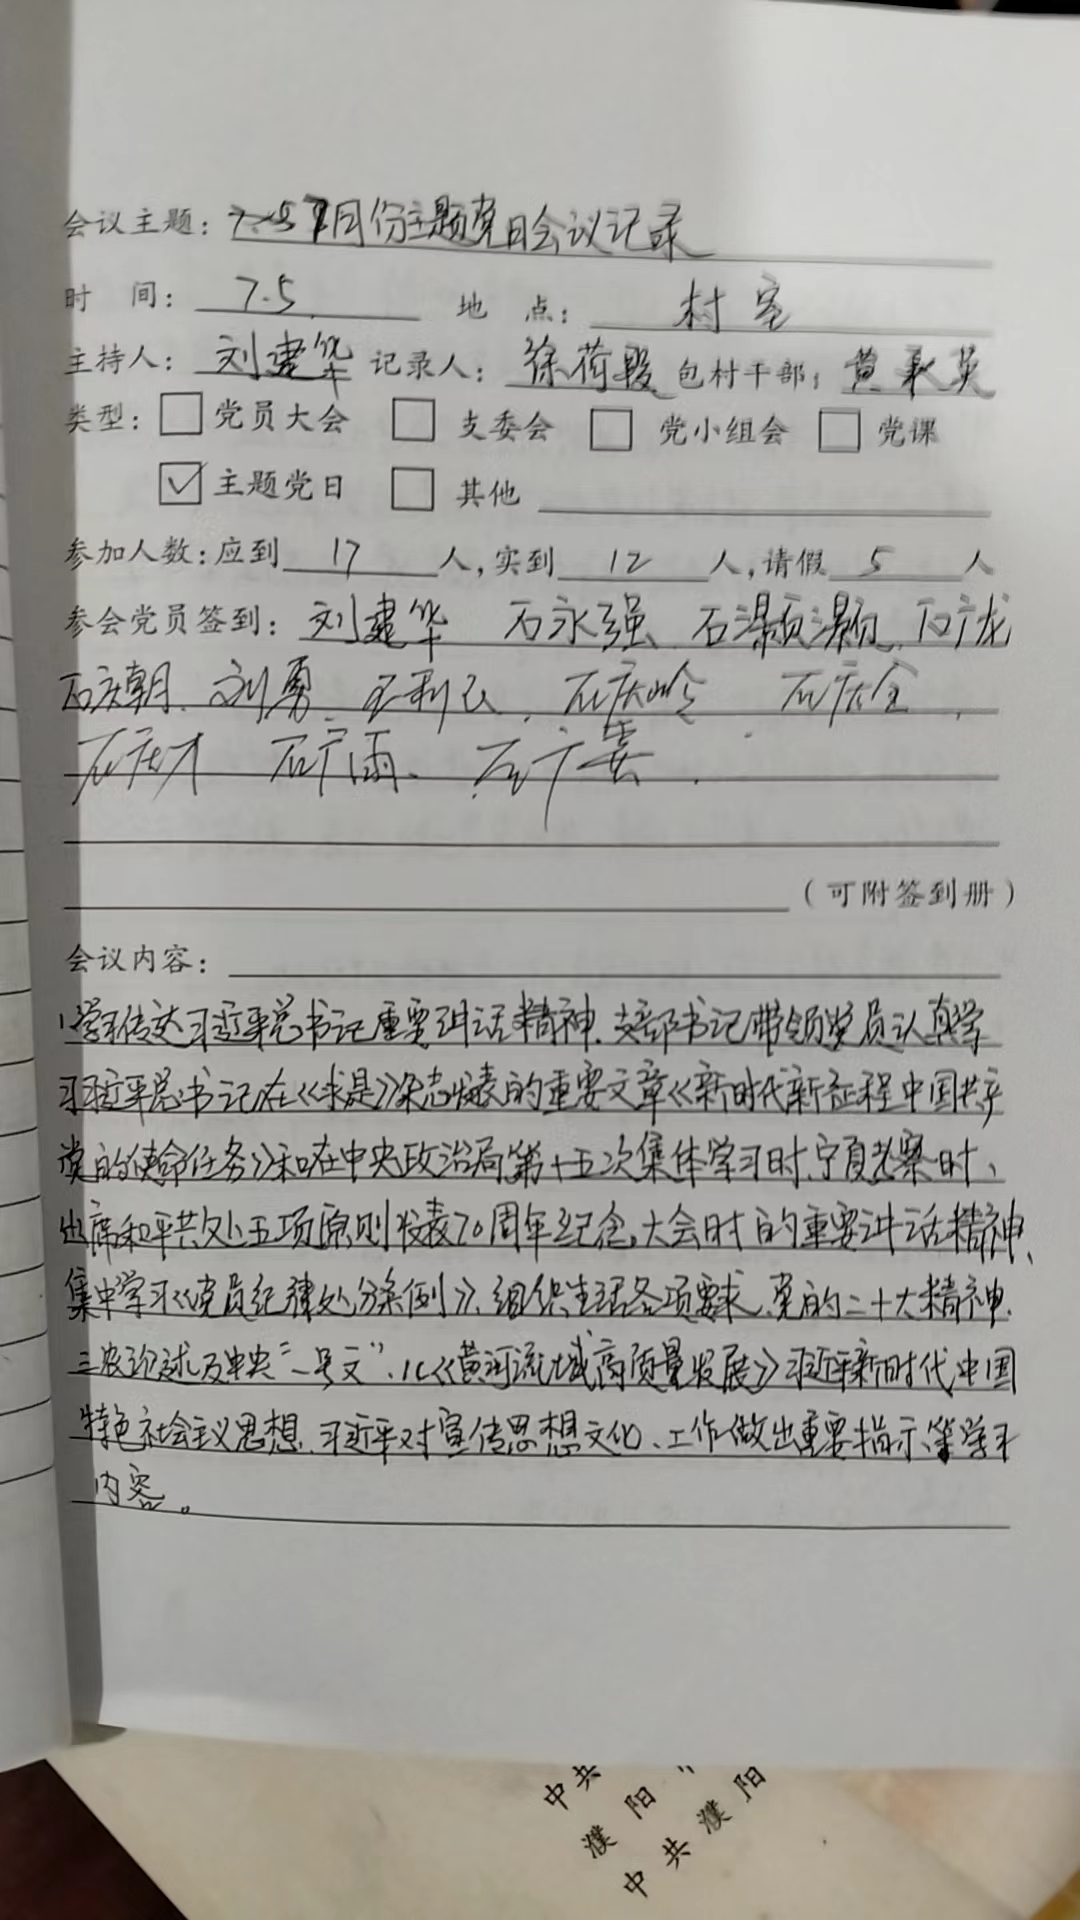 会议主题：7月份主题党日会议记录
时 间：7.5 地 点：村室
主持人：刘建华 记录人：徐荷 包村干部：黄 英
类型：□党员大会 □支委会 □党小组会 □党课
☑主题党日 □其他
参加人数：应到17人，实到12人，请假5人
参会党员签到：刘建华 石永强 石灏灏 石广龙
石庆朝、刘勇、王利民、石庆岭 石庆全、
石庆才 石广雨、石广
（可附签到册）
会议内容：
1.学习传达习近平总书记重要讲话精神、支部书记带领党员认真学
习习近平总书记在《求是》杂志发表的重要文章《新时代新征程中国共产
党的使命任务》和在中央政治局第十五次集体学习时、宁夏考察时、
出席和平共处五项原则发表70周年纪念大会时的重要讲话精神、
集中学习《党员纪律处分条例》、组织生活各项要求、党的二十大精神、
三农论述及中央“一号文”、《黄河流域高质量发展》习近平新时代中国
特色社会主义思想、习近平对宣传思想文化、工作做出重要指示、等学习
内容。
中共
濮阳
中共濮阳